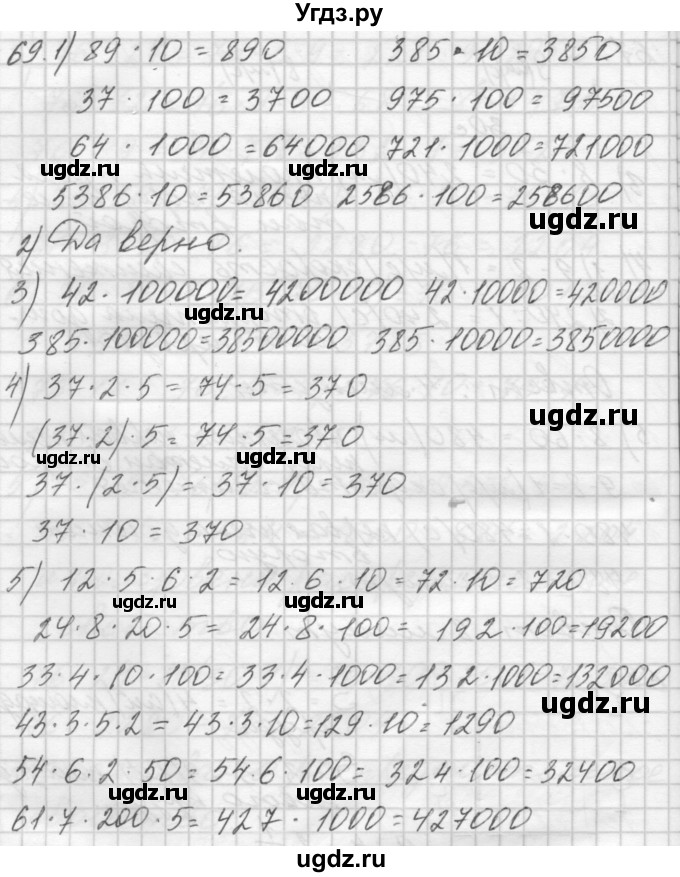 Угдз.ру
69.1) 89 · 10 = 890 385 · 10 = 3850
37 · 100 = 3700 975 · 100 = 97500
64 · 1000 = 64000 721 · 1000 = 721000
ugdz.ru ugdz.ru
5386 · 10 = 53860 2586 · 100 = 258600
ugdz.ru
2) Да верно.
3) 42 · 100000 = 4200000 42 · 10000 = 420000
ugdz.ru
385 · 100000 = 38500000 385 · 10000 = 3850000
4) 37 · 2 · 5 = 74 · 5 = 370
ugdz.ru
(37 · 2) · 5 = 74 · 5 = 370
ugdz.ru ugdz.ru
37 · (2 · 5) = 37 · 10 = 370
37 · 10 = 370
5) 12 · 5 · 6 · 2 = 12 · 6 · 10 = 72 · 10 = 720
ugdz.ru ugdz.ru
24 · 8 · 20 · 5 = 24 · 8 · 100 = 192 · 100 = 19200
33 · 4 · 10 · 100 = 33 · 4 · 1000 = 132 · 1000 = 132000
ugdz.ru
43 · 3 · 5 · 2 = 43 · 3 · 10 = 129 · 10 = 1290
54 · 6 · 2 · 50 = 54 · 6 · 100 = 324 · 100 = 32400
ugdz.ru ugdz.ru
61 · 7 · 200 · 5 = 427 · 1000 = 427000
ugdz.ru